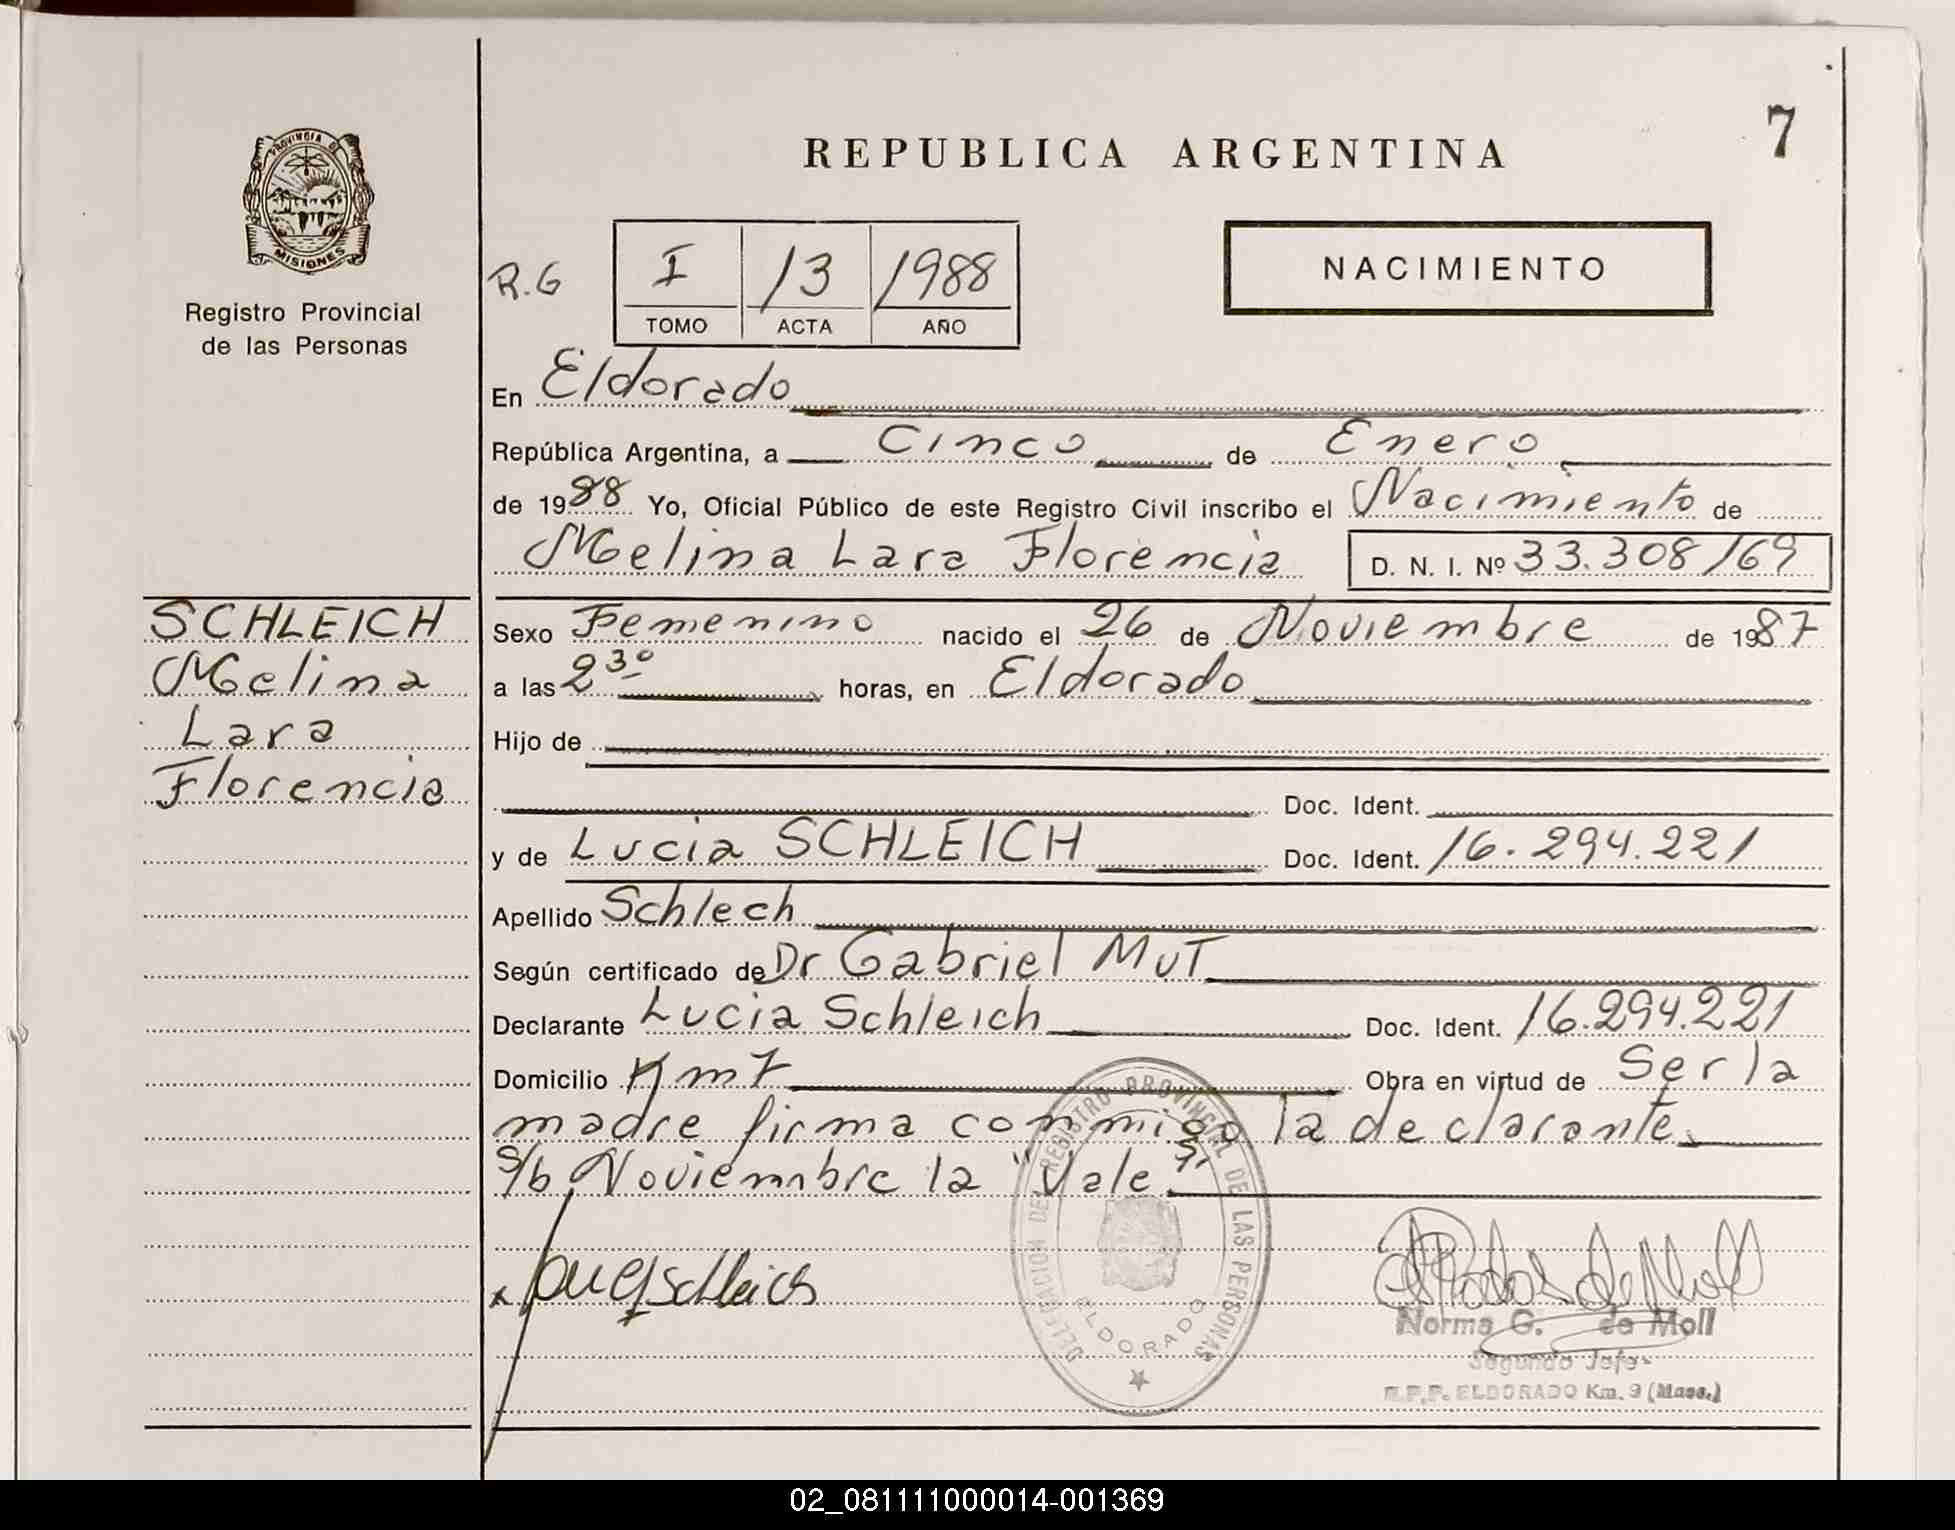 7
REPUBLICA ARGENTINA
PROVINCIA DE
MISIONES
Registro Provincial
de las Personas
R.G
I 13 1988
TOMO ACTA AÑO
NACIMIENTO
En Eldorado
República Argentina, a Cinco de Enero
de 1988 Yo, Oficial Público de este Registro Civil inscribo el Nacimiento de
Melina Lara Florencia D. N. I. Nº 33.308169
SCHLEICH
Melina
Lara
Florencia
Sexo Femenino nacido el 26 de Noviembre de 1987
a las 2 30 horas, en Eldorado
Hijo de
Doc. Ident.
y de Lucia SCHLEICH Doc. Ident. 16.294.221
Apellido Schlech
Según certificado de Dr Gabriel MUT
Declarante Lucia Schleich Doc. Ident. 16.294.221
Domicilio Km 7 Obra en virtud de Ser la
madre firma conmigo la declarante
S/b Noviembre la "Vale"
DELEGACION DEL REGISTRO PROVINCIAL DE LAS PERSONAS
ELDORADO
x Schleich
Norma G. de Moll
Segundo Jefe
R.P.P. ELDORADO Km. 9 (Mnes.)
02_081111000014-001369